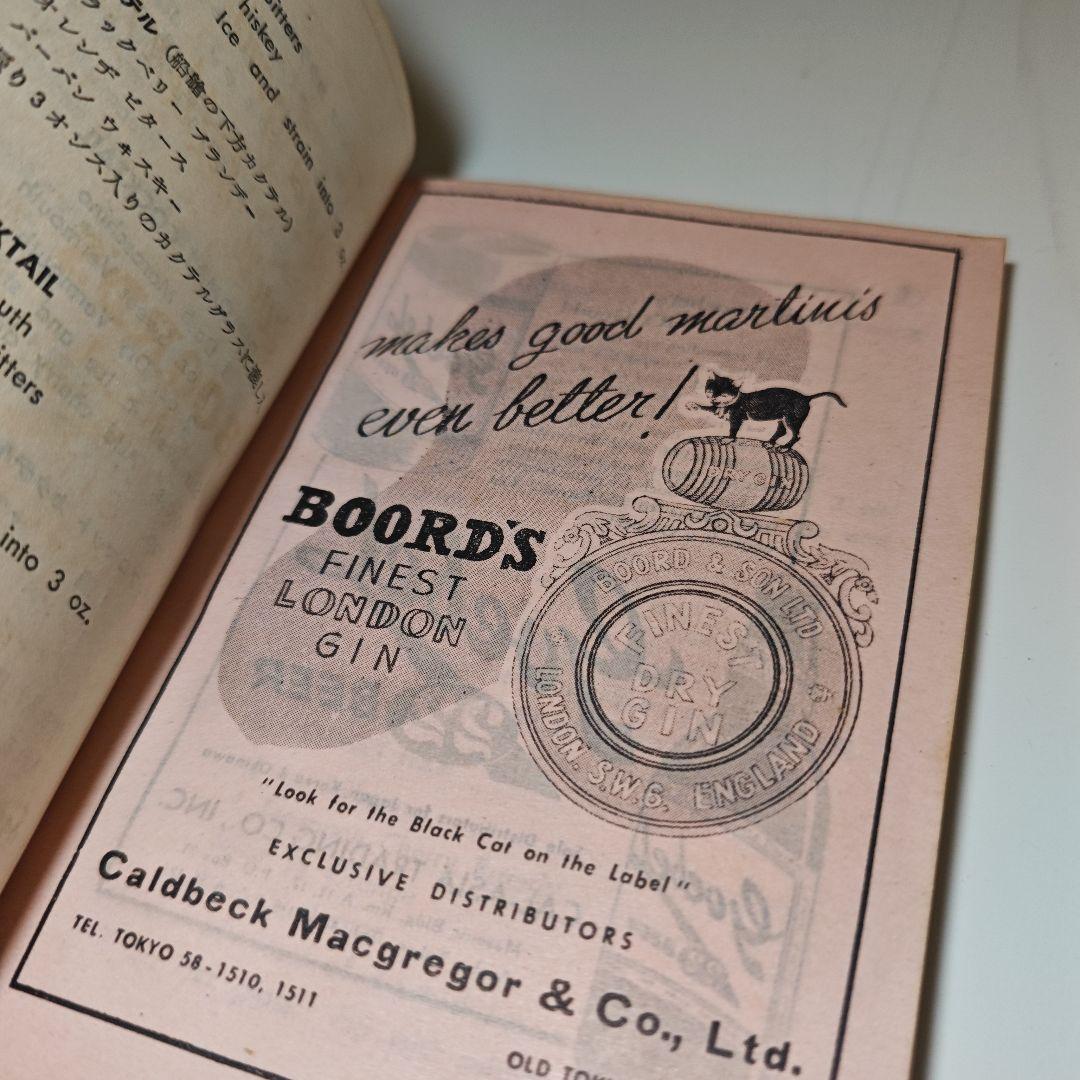 bitters
hiskey
Ice and strain into 3 oz.
テル (船艙の下方カクテル)
ラックベリー ブランデー
オレンヂ ビタース
バーバン ウヰスキー
3オンス入りのカクテルグラスに
KTAIL
uth
itters
into 3 oz.
makes good martinis
even better!
DRY GIN
BOORD'S
FINEST
LONDON
GIN
BOORD & SON LTD
LONDON. S.W.6. ENGLAND
FINEST
DRY
GIN
"Look for the Black Cat on the Label"
EXCLUSIVE DISTRIBUTORS
Caldbeck Macgregor & Co., Ltd.
TEL. TOKYO 58-1510, 1511
OLD